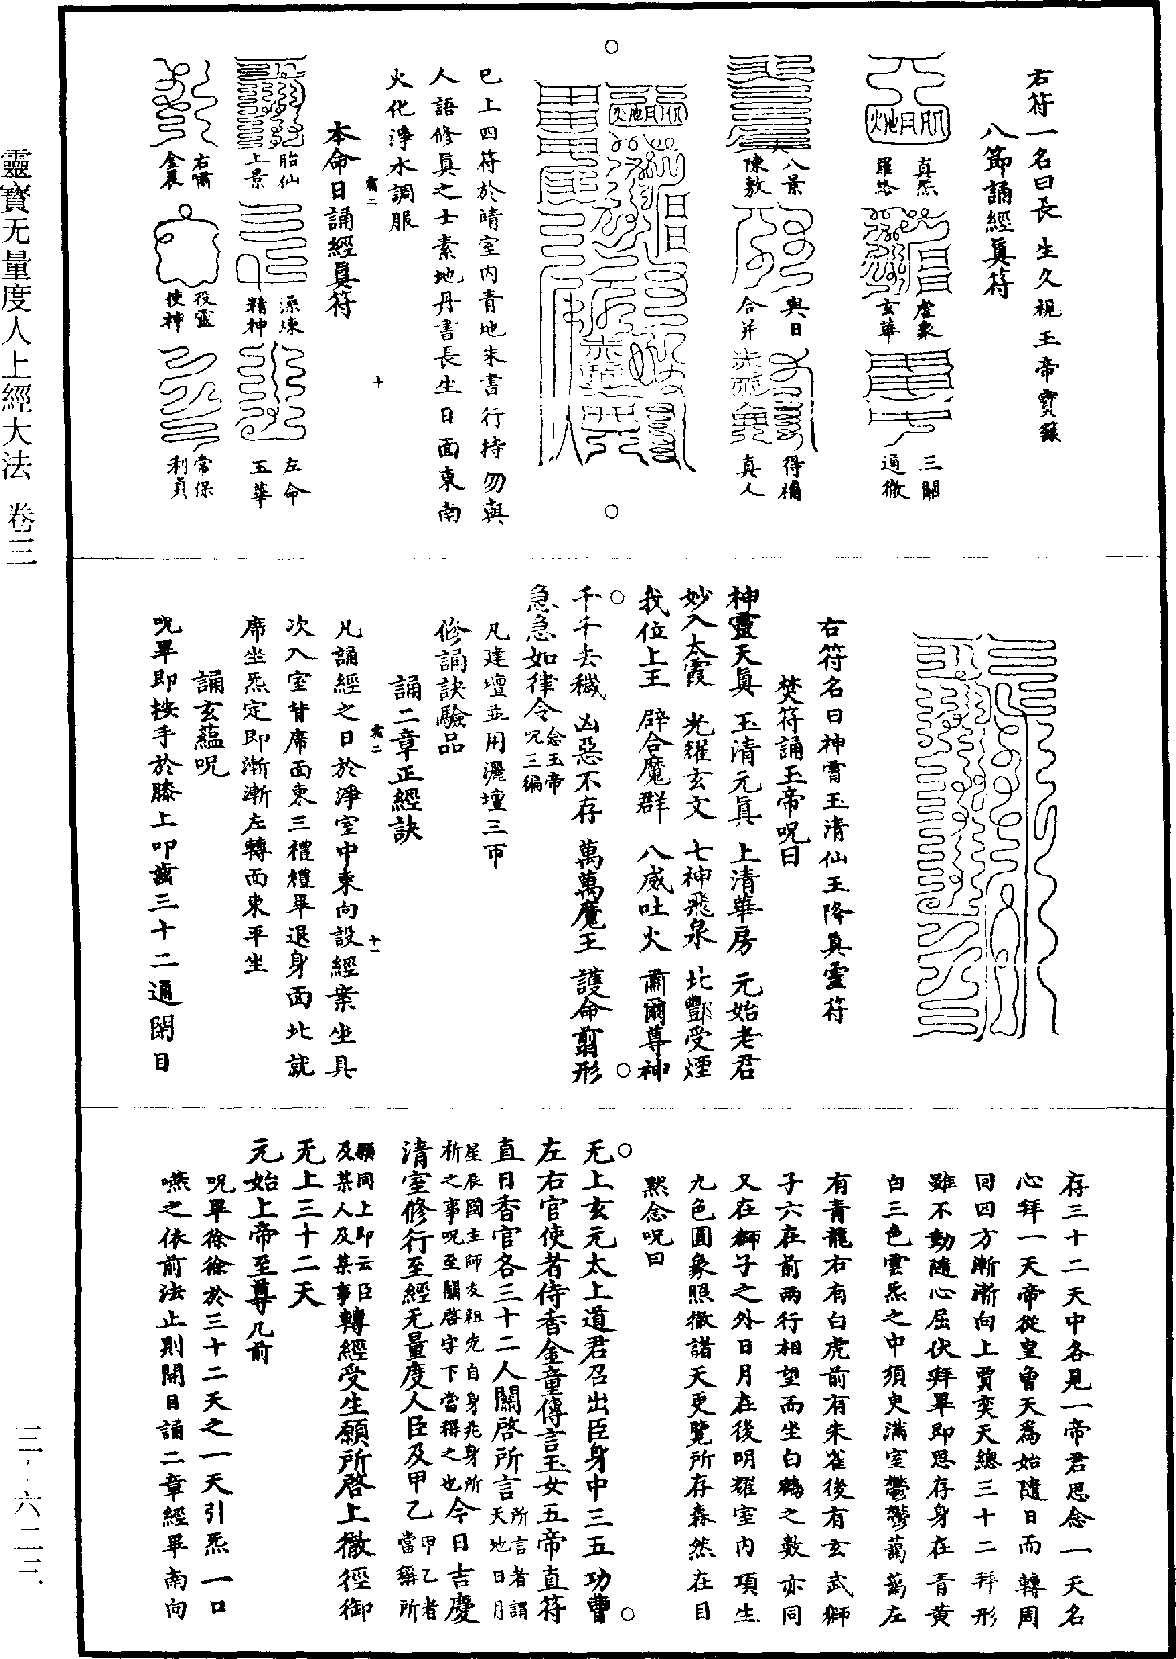 靈寶无量度人上經大法 卷三
三·六二三
右符一名曰長生久視玉帝寶籙
八節誦經真符
真炁
羅絡
虛衆
玄華
三關
通徹
八景
陳敷
與日
合并
得補
真人
已上四符於晴室内青地朱書行持勿與
人語修真之士素地丹書長生日面東南
火化淨水調服
本命日誦經真符
胎仙
上景
漂煉
精神
左命
玉華
右嘯
金晨
役靈
使神
常保
利貞
右符名曰神霄玉清仙王降真靈符
焚符誦玉帝呪曰
神靈天真 玉清元真 上清華房 元始老君
妙入太霞 光耀玄文 七神飛泉 北酆受煙
我位上王 辟合魔群 八威吐火 肅爾尊神
千千去穢 凶惡不存 萬萬魔王 護命剪形
急急如律令念玉帝呪三編
凡建壇並用灑壇三帀
修誦訣驗品
誦二章正經訣
凡誦經之日於淨室中東向設經案坐具
次入室甘席面東三禮禮畢退身面北就
席坐炁定即漸漸左轉面東平坐
誦玄蘊呪
呪畢即按手於膝上叩齒三十二通閉目
存三十二天中各見一帝君思念一天名
心拜一天帝從皇曾天為始隨日而轉周
回四方漸漸向上賈奕天總三十二拜形
雖不動隨心屈伏拜畢即思存身在青黃
白三色雲炁之中須臾滿室鬱鬱藹藹左
有青龍右有白虎前有朱雀後有玄武獅
子六在前兩行相望而坐白鶴之數亦同
又在獅子之外日月在後明耀室内項生
九色圓象照徹諸天更覽所存森然在目
默念呪曰
无上玄元太上道君召出臣身中三五功曹
左右官使者侍香金童傳言玉女五帝直符
直日香官各三十二人關啓所言所言者謂天地日月
星辰國主師友祖先自身兆身所祈之事呪至關啓字下當稱之也今日吉慶
清室修行至經无量度人臣及甲乙甲乙者當稱所
願同上即云臣及某人及某事轉經受生願所啓上徹徑御
无上三十二天
元始上帝至尊几前
呪畢徐徐於三十二天之一天引炁一口
嚥之依前法止則開目誦二章經畢南向